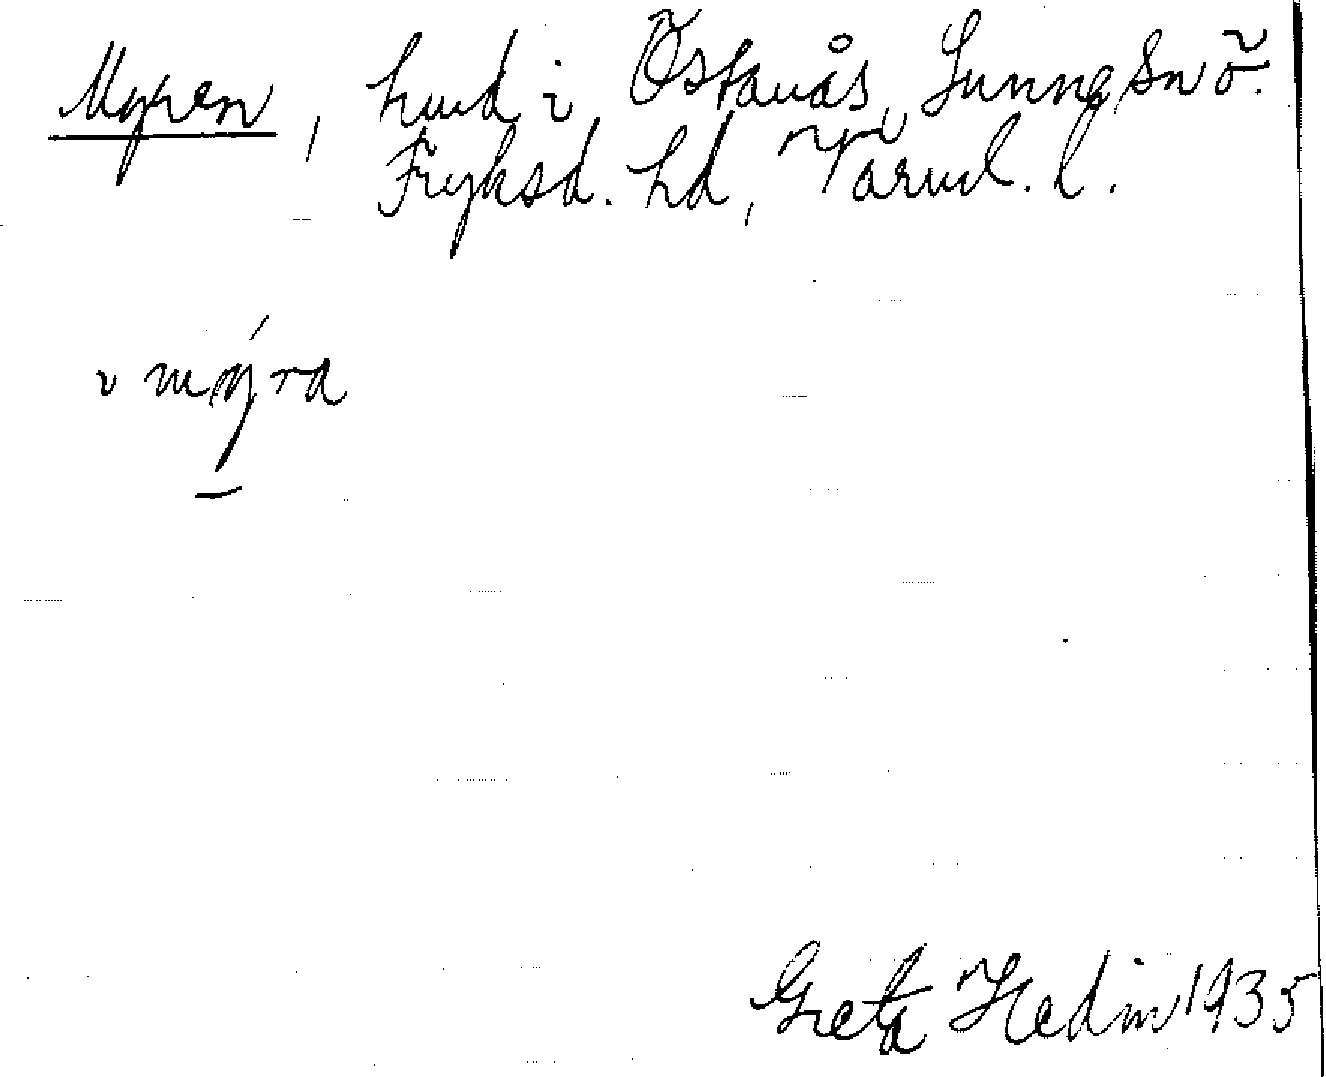 Myren, hmd i Östanås, Sunne sn ö.
Fryksd. hd, Värml. l.
mýra
Greta Hedin 1935